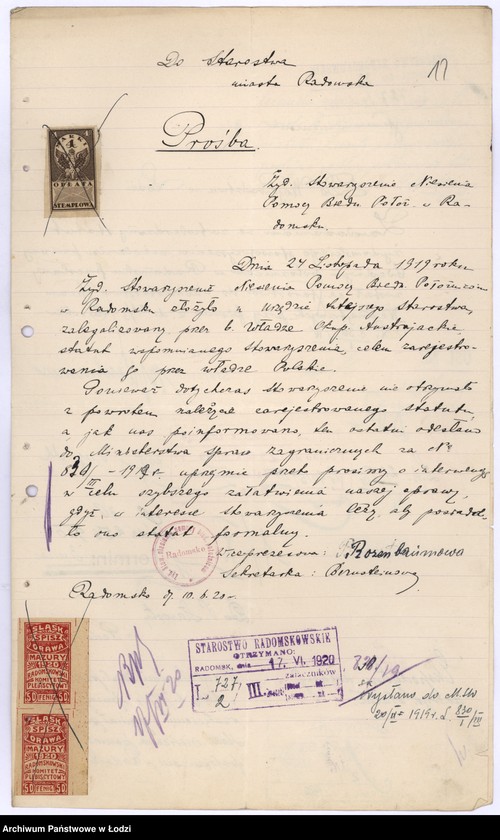 Do Starostwa
miasta Radomska
17
Prośba.
MARKA
1
OPŁATA
STEMPLOWA
Żyd. Stowarzyszenie Niesienia
Pomocy Biedn. Położ. w Ra-
domsku.
Dnia 24 Listopada 1919 roku
Żyd. Stowarzyszenie Niesienia Pomocy Biedn. Położnicom
w Radomsku złożyło w urzędzie tutejszego Starostwa,
zalegalizowany przez b. Władze Okup. Austrajackie
statut wspomnianego Stowarzyszenia, celem zarejestro-
wania go przez władze Polskie.
Ponieważ dotychczas Stowarzyszenie nie otrzymało
z powrotem należycie zarejestrowanego statutu,
a jak nas poinformowano, ten ostatni odesłano
do Ministerstwa spraw zagranicznych za №
830 – 1919r. uprzejmie prosimy o interwencję
w celu szybszego załatwienia naszej sprawy,
gdyż w interesie stowarzyszenia leży, aby posiada-
ło ono statut formalny.
Radomsko
Viceprezesowa: Rozenbaumowa
Sekretarka: Bernsteinowa
Radomsko d/. 10.6.20 r.
ŚLĄSK
SPISZ
ORAWA
MAZURY
1920
RADOMSKOWSKI
KOMITET
PLEBISCYTOWY
50 FENIG. 50
ŚLĄSK
SPISZ
ORAWA
MAZURY
1920
RADOMSKOWSKI
KOMITET
PLEBISCYTOWY
50 FENIG. 50
STAROSTWO RADOMSKOWSKIE
OTRZYMANO:
RADOMSK, dnia 17. VI. 1920
L. 727/2 III. załączników
830/19
Wysłano do M.S.W
20/II 1919 r. L. 830/I/III
Archiwum Państwowe w Łodzi